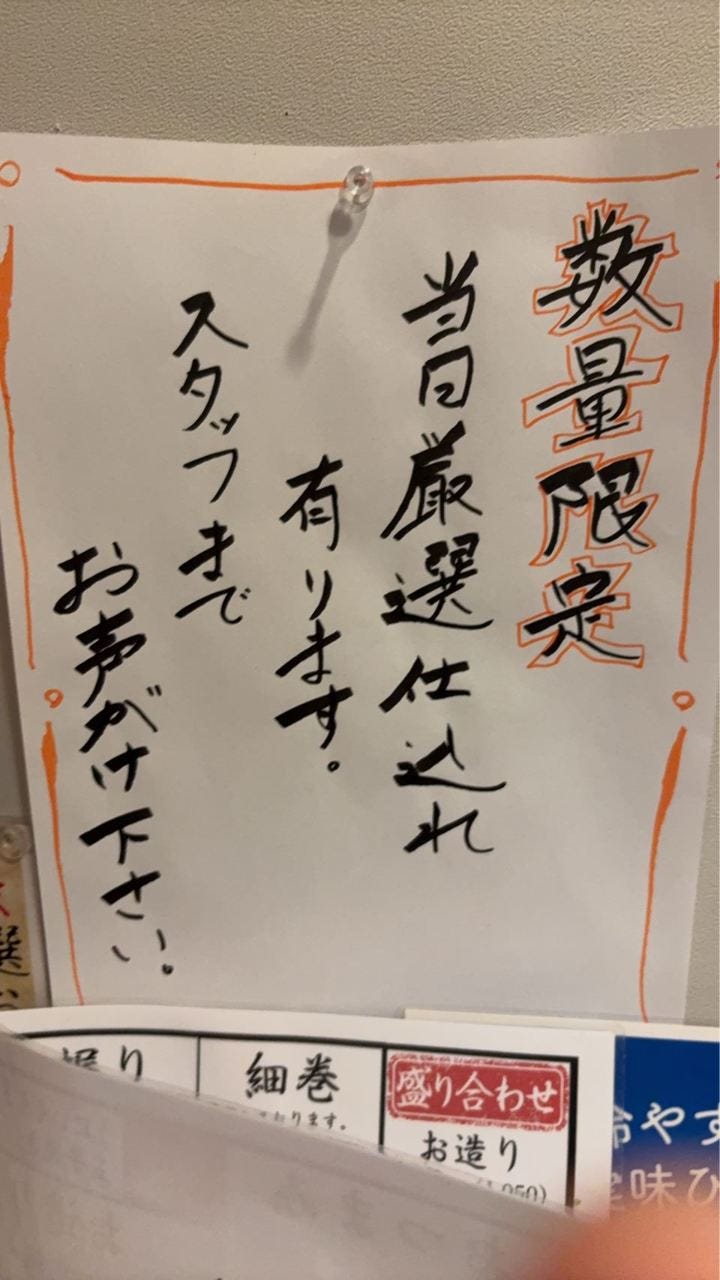 数量限定
当日厳選仕込れ
有ります。
スタッフまで
お声がけ下さい。
選
盛り合わせ
お造り
細巻
おります。
握り
冷やす
味ひ